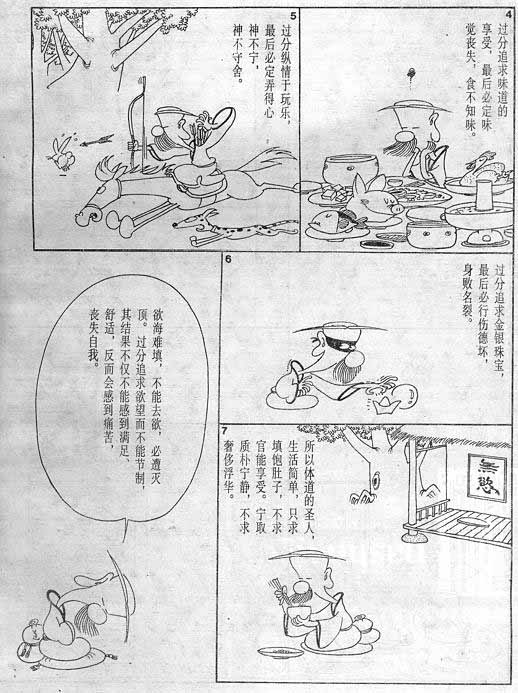 4
过分追求味道的
享受，最后必定味
觉丧失，食不知味。
5
过分纵情于玩乐，
最后必定弄得心
神不宁，
神不守舍。
6
过分追求金银珠宝，
最后必行伤德坏，
身败名裂。
7
所以体道的圣人，
生活简单，只求
填饱肚子，不求
官能享受。宁取
质朴宁静，不求
奢侈浮华。
無慾
欲海难填，不能去欲，必遭灭
顶。过分追求欲望而不能节制，
其结果不仅不能感到满足、
舒适，反而会感到痛苦，
丧失自我。